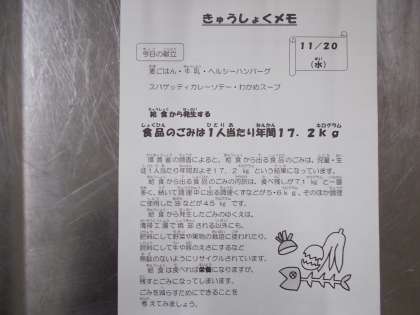 きゅうしょくメモ
今日の献立
11/20
(水)
麦ごはん・牛乳・ヘルシーハンバーグ
スパゲッティカレーソテー・わかめスープ
給食から発生する
食品のごみは1人当たり年間17.2Kg
環境省の調査によると、給食から出る食品のごみは、児童・生
徒1人当たり年間およそ17.2kgという結果になっています。
給食から出る食品のごみの内訳は、食べ残しが7.1kgと一番
多く、続いて調理中に出る調理くずなどが5.6kg、そのほか調理
に使用した油などが4.5kgです。
給食から発生したごみのゆくえは、
清掃工場で焼却される以外にも、
肥料にして野菜や果物の栽培に使われたり、
飼料にして牛や豚のえさにするなど
無駄のないようにリサイクルされています。
給食は食べれば栄養になりますが、
残すとごみになってしまいます。
ごみを減らすためにできることを
考えてみましょう。